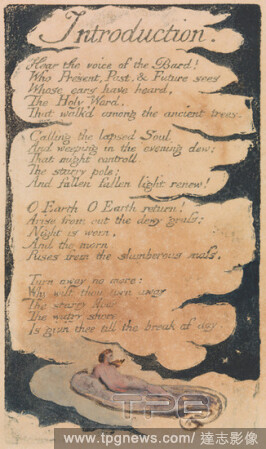 Introduction.
Hear the voice of the Bard!
Who Present, Past, & Future sees
Whose ears have heard,
The Holy Word,
That walk'd among the ancient trees.
Calling the lapsed Soul
And weeping in the evening dew:
That might controll
The starry pole;
And fallen fallen light renew!
O Earth O Earth return!
Arise from out the dewy grass;
Night is worn,
And the morn
Rises from the slumberous mass.
Turn away no more:
Why wilt thou turn away
The starry floor
The watry shore
Is giv'n thee till the break of day.
TPG
www.tpgnews.com / 達志影像